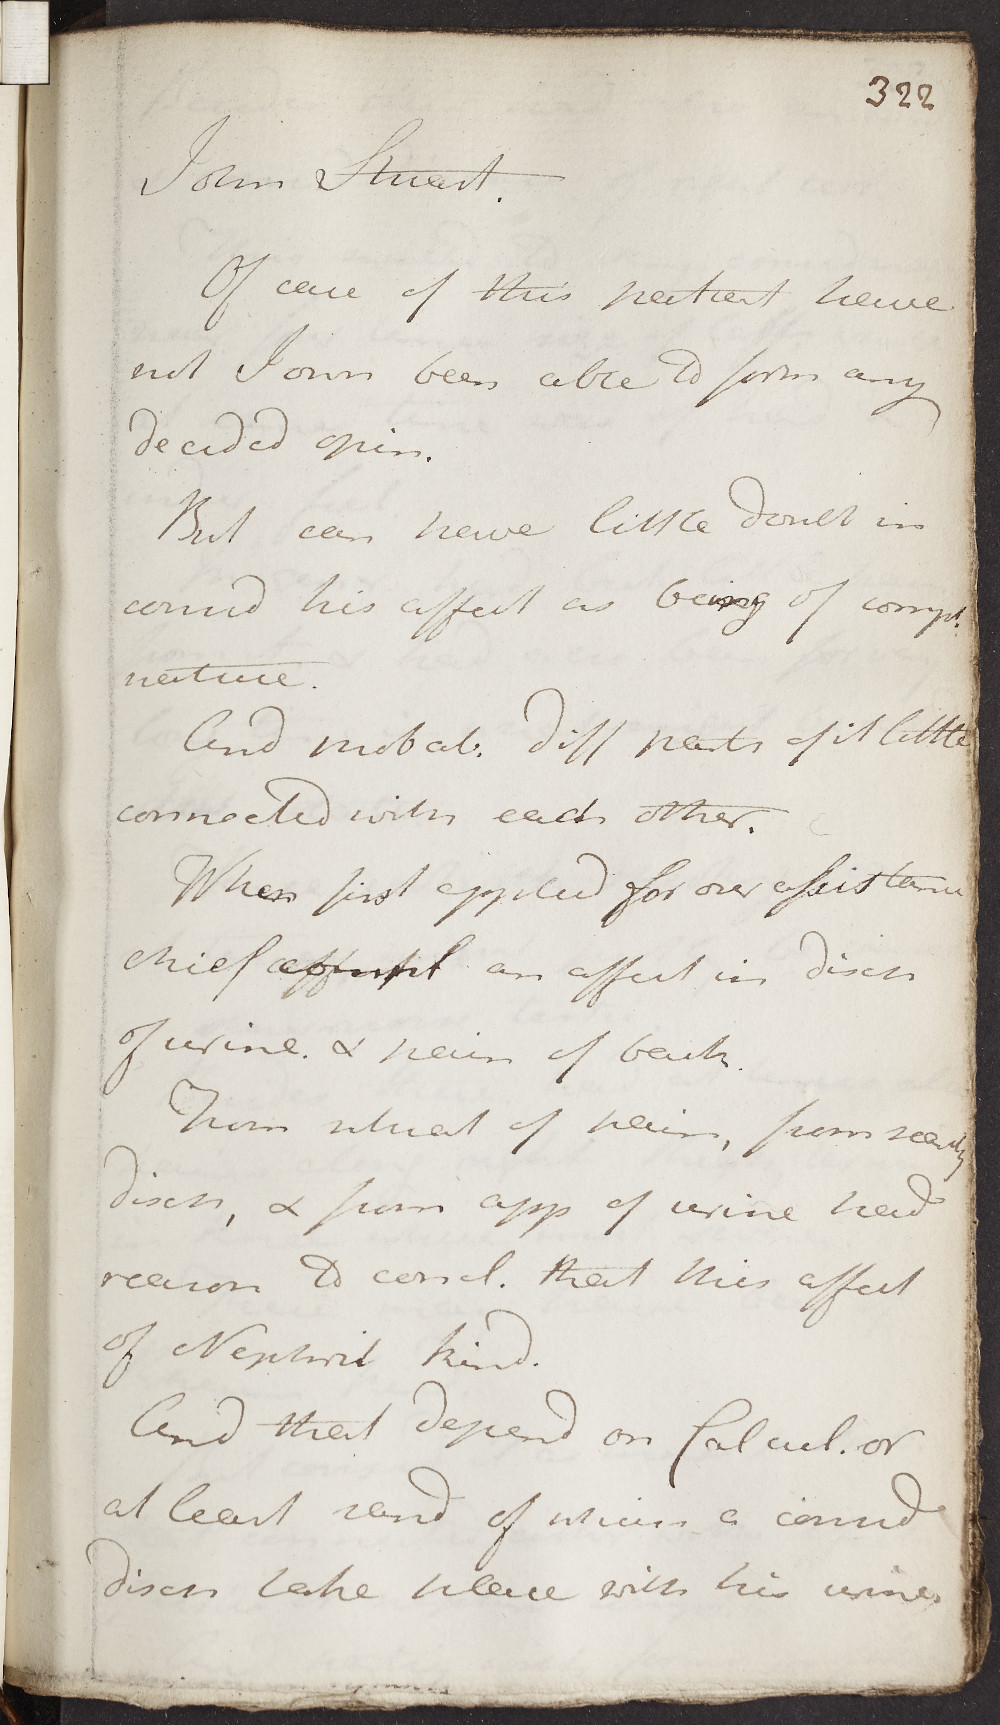 322
John Stuart.
Of case of this patient have
not I own been able to form any
decided opin.
But can have little doubt in
consid his affect as being of comp.t
nature.
And probab. diff parts of it little
connected with each other.
When first applied for our assistance
chief an affect in disch
of urine. & pain of back.
From seat of pain, from
disch, & from app of urine had
reason to concl. that this affect
of Nephrit kind.
And that depend on Calcul. or
at least sand of which a consid
disch take place with his urine